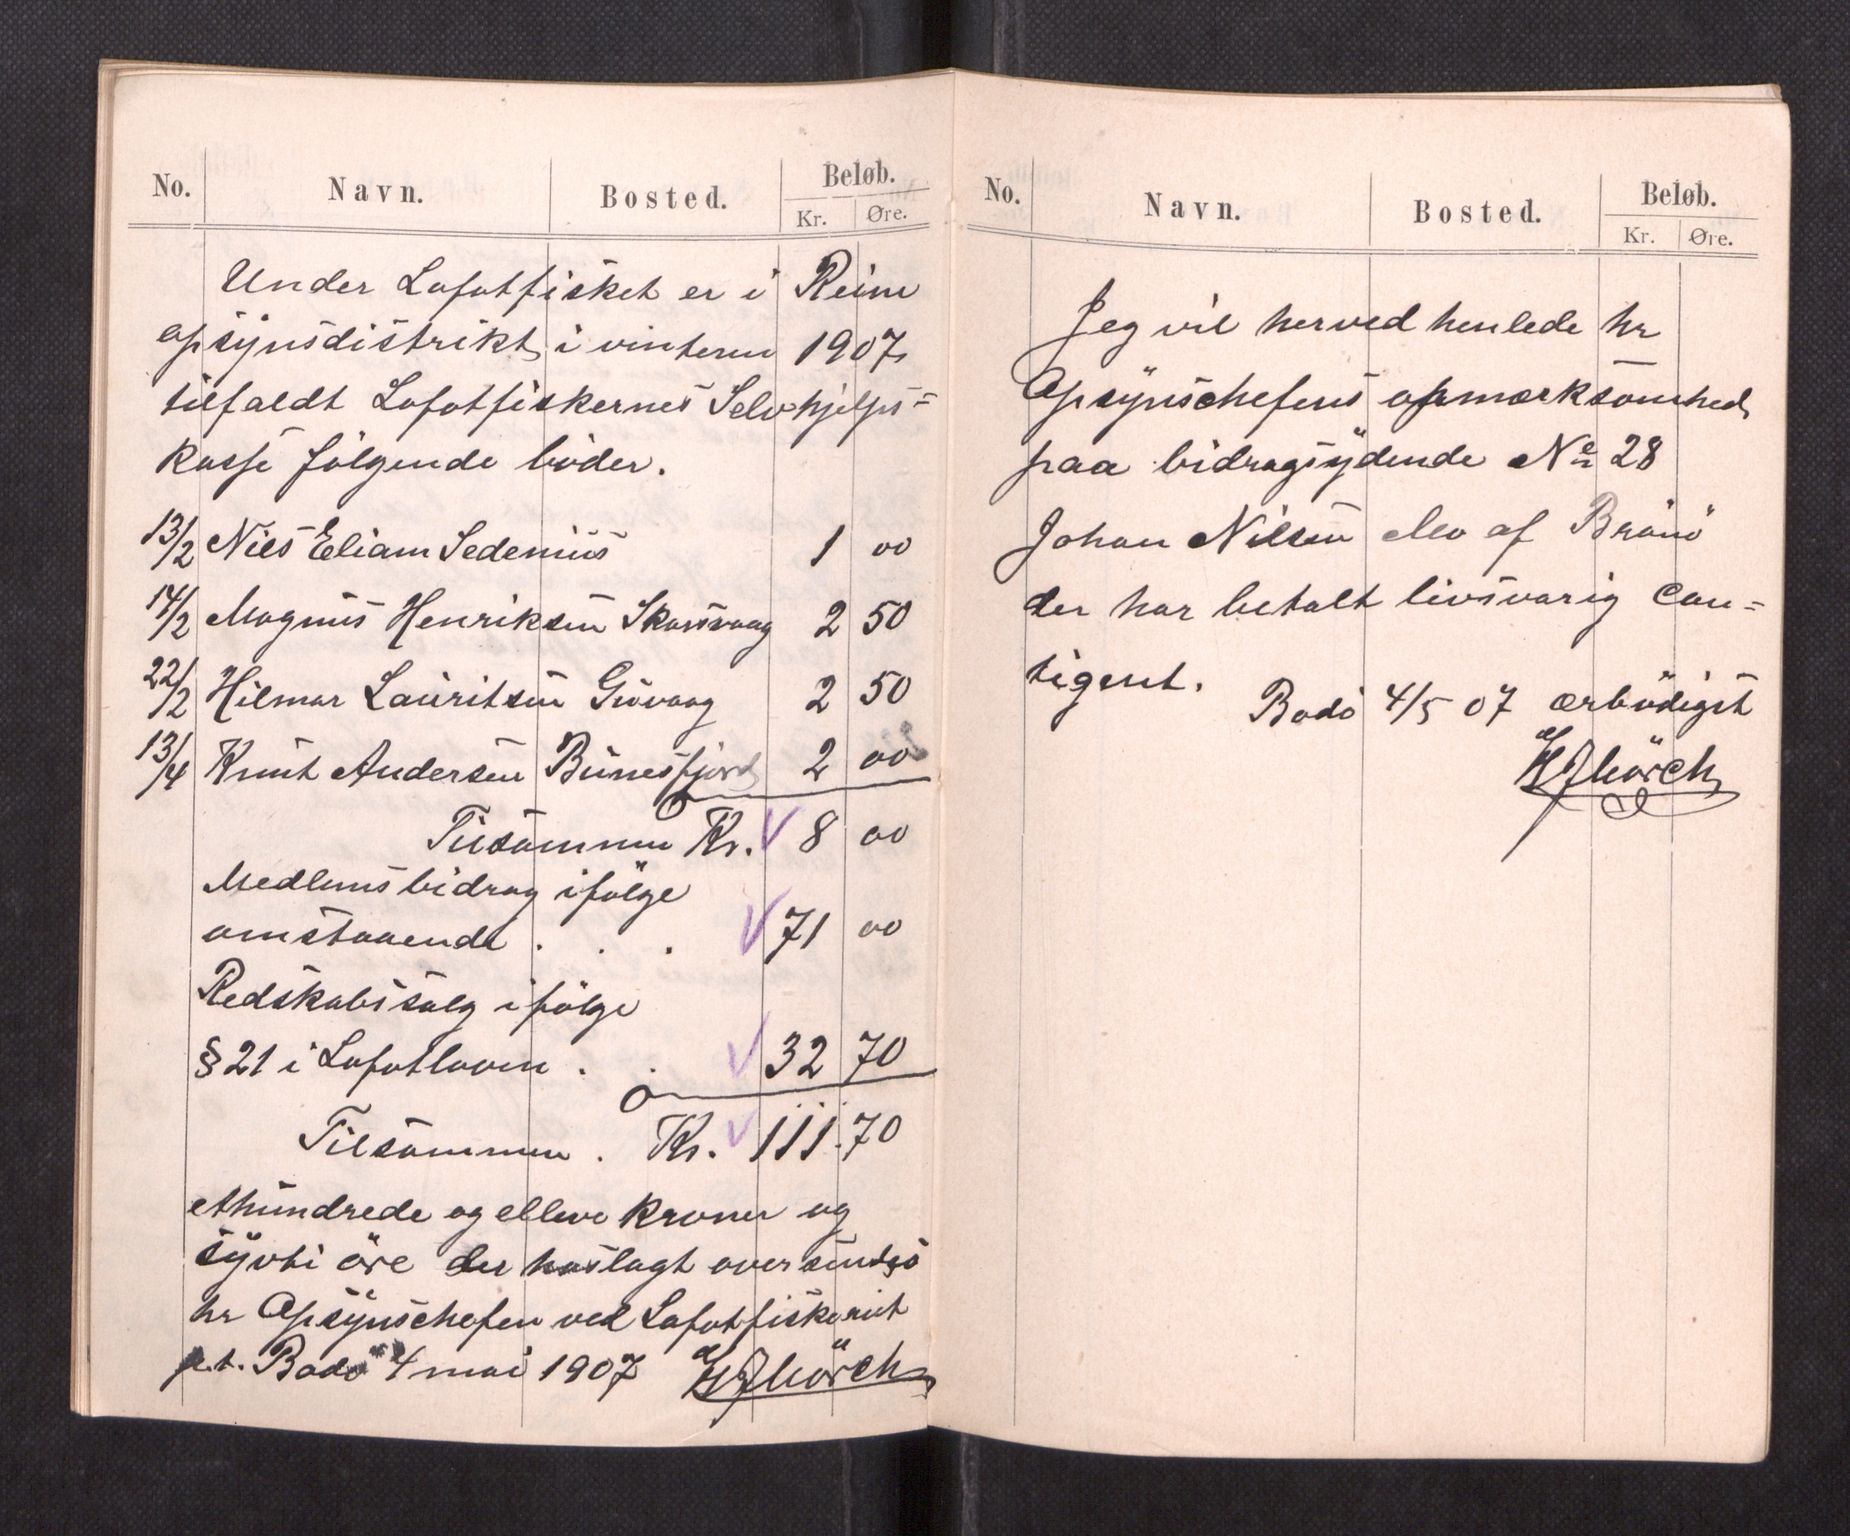 No. Navn. Bosted. Beløb.
Kr. Øre.
Under Lofotfisket er i Reine
opsynsdistrikt i vinteren 1907
tilfaldt Lofotfiskernes Selvhjelps=
kasse følgende bøder.
13/2 Nils Eliam Sedenius 1 00
14/2 Magnus Henriksen Skarsvaag 2 50
22/2 Hilmar Lauritsen Givaag 2 50
13/4 Knut Andersen Bunesfjord 2 00
Tilsammen Kr. 8 00
Medlemsbidrag ifölge
omstaaende . . . 71 00
Redskabssalg ifölge
§ 21 i Lofotloven . . 32 70
Tilsammen . Kr. 111.70
ethundrede og elleve kroner og
sÿvti öre der hoslagt oversendes
hr Opsÿnschefen ved Lofotfiskeriet
p.t. Bodö 4 mai 1907 Mörch
No. Navn. Bosted. Beløb.
Kr. Øre.
Jeg vil herved henlede hr
Opsÿnschefens opmærksomhed
paa bidragsÿdende No 28
Johan Nilsen Mo af Brönö
der har betalt livsvarig Con=
tigent.
Bodö 4/5 07 ærbödigst
Mörch